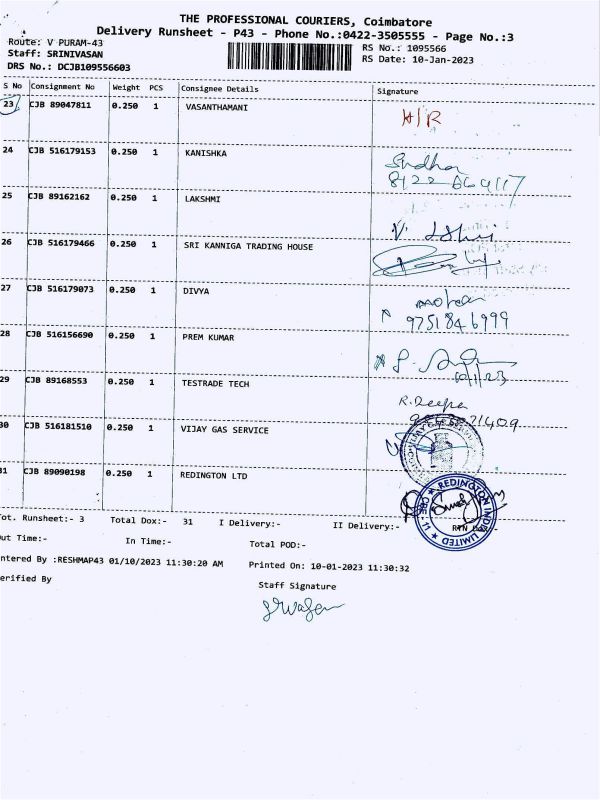 THE PROFESSIONAL COURIERS, Coimbatore
Delivery Runsheet - P43 - Phone No.:0422-3505555 - Page No.:3
Route: V PURAM-43
RS No.: 1095566
Staff: SRINIVASAN
RS Date: 10-Jan-2023
DRS No.: DCJB109556603
S No Consignment No Weight PCS Consignee Details Signature
23 CJB 89047811 0.250 1 VASANTHAMANI H/R
24 CJB 516179153 0.250 1 KANISHKA Sudha
25 CJB 89162162 0.250 1 LAKSHMI
26 CJB 516179466 0.250 1 SRI KANNIGA TRADING HOUSE
27 CJB 516179073 0.250 1 DIVYA
9751846999
28 CJB 516156690 0.250 1 PREM KUMAR
10/1/23
29 CJB 89168553 0.250 1 TESTRADE TECH R. Deepa
30 CJB 516181510 0.250 1 VIJAY GAS SERVICE
31 CJB 89090198 0.250 1 REDINGTON LTD
REDINGTON INDIA LIMITED
CBE - 11
Tot. Runsheet:- 3 Total Dox:- 31 I Delivery:- II Delivery:-
Out Time:- In Time:- Total POD:-
Entered By :RESHMAP43 01/10/2023 11:30:20 AM Printed On: 10-01-2023 11:30:32
Verified By Staff Signature